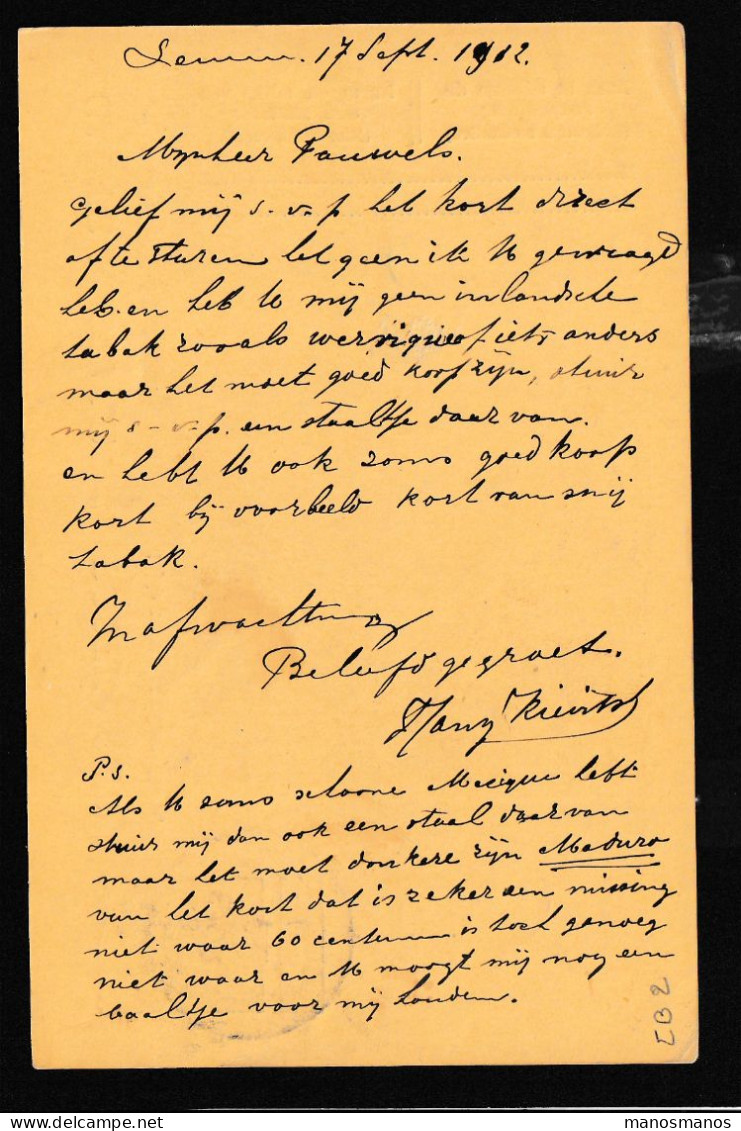 17 Sept. 1912.
Mijnheer Pauwels.
Gelief mij s.v.p het kort direct
af te sturen hetgeen ik U gevraagd
heb. en heb U mij geen inlandsche
tabak zooals wervique of iets anders
maar het moet goed koop zijn, stuur
mij s-v-p. een staaltje daar van.
en hebt U ook soms goed koop
kort bij voorbeeld kort van snij
tabak.
In afwachting
Beleefd gegroet.
P.s.
Als U soms schoone Mexique hebt
stuur mij dan ook een staal daar van
maar het moet donkere zijn Maduro
van het kort dat is zeker een missing
niet waar 60 centiem is toch genoeg
niet waar en U moogt mij nog een
baaltje voor mij houden.
CB2
manosmanos